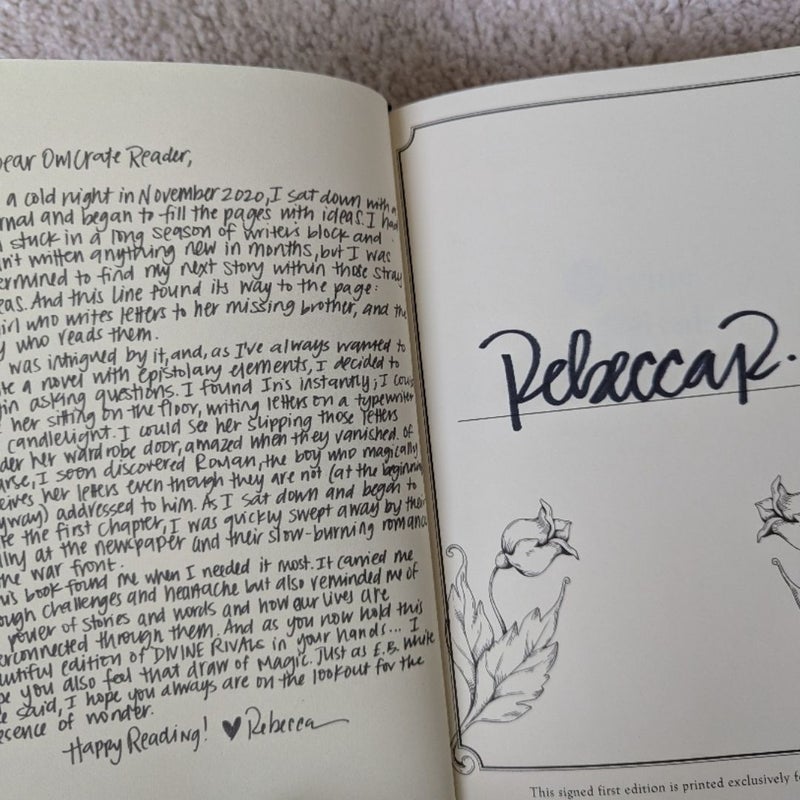 Dear OwlCrate Reader,
a cold night in November 2020, I sat down with a
rnal and began to fill the pages with ideas. I had
stuck in a long season of writer's block and
n't written anything new in months, but I was
ermined to find my next story within those stray
eas. And this line found its way to the page:
irl who writes letters to her missing brother, and the
y who reads them.
was intrigued by it, and, as I've always wanted to
te a novel with epistolary elements, I decided to
in asking questions. I found Iris instantly; I could
her sitting on the floor, writing letters on a typewriter
candlelight. I could see her slipping those letters
der her wardrobe door, amazed when they vanished. Of
urse, I soon discovered Roman, the boy who magically
eives her letters even though they are not (at the beginning
yway) addressed to him. As I sat down and began to
te the first chapter, I was quickly swept away by their
alry at the newspaper and their slow-burning romance
the war front.
his book found me when I needed it most. It carried me
ough challenges and heartache but also reminded me of
power of stories and words and how our lives are
erconnected through them. And as you now hold this
autiful edition of DIVINE RIVALS in your hands... I
pe you also feel that draw of magic. Just as E.B. White
e said, I hope you always are on the lookout for the
esence of wonder.
Happy Reading! ♥ Rebecca
Rebecca R.
This signed first edition is printed exclusively fo